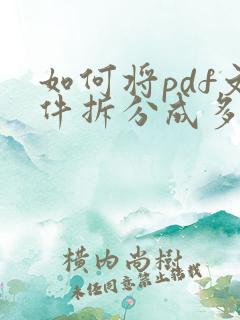 如何将pdf文
件拆分成多
横内尚树
未经同意禁止转载